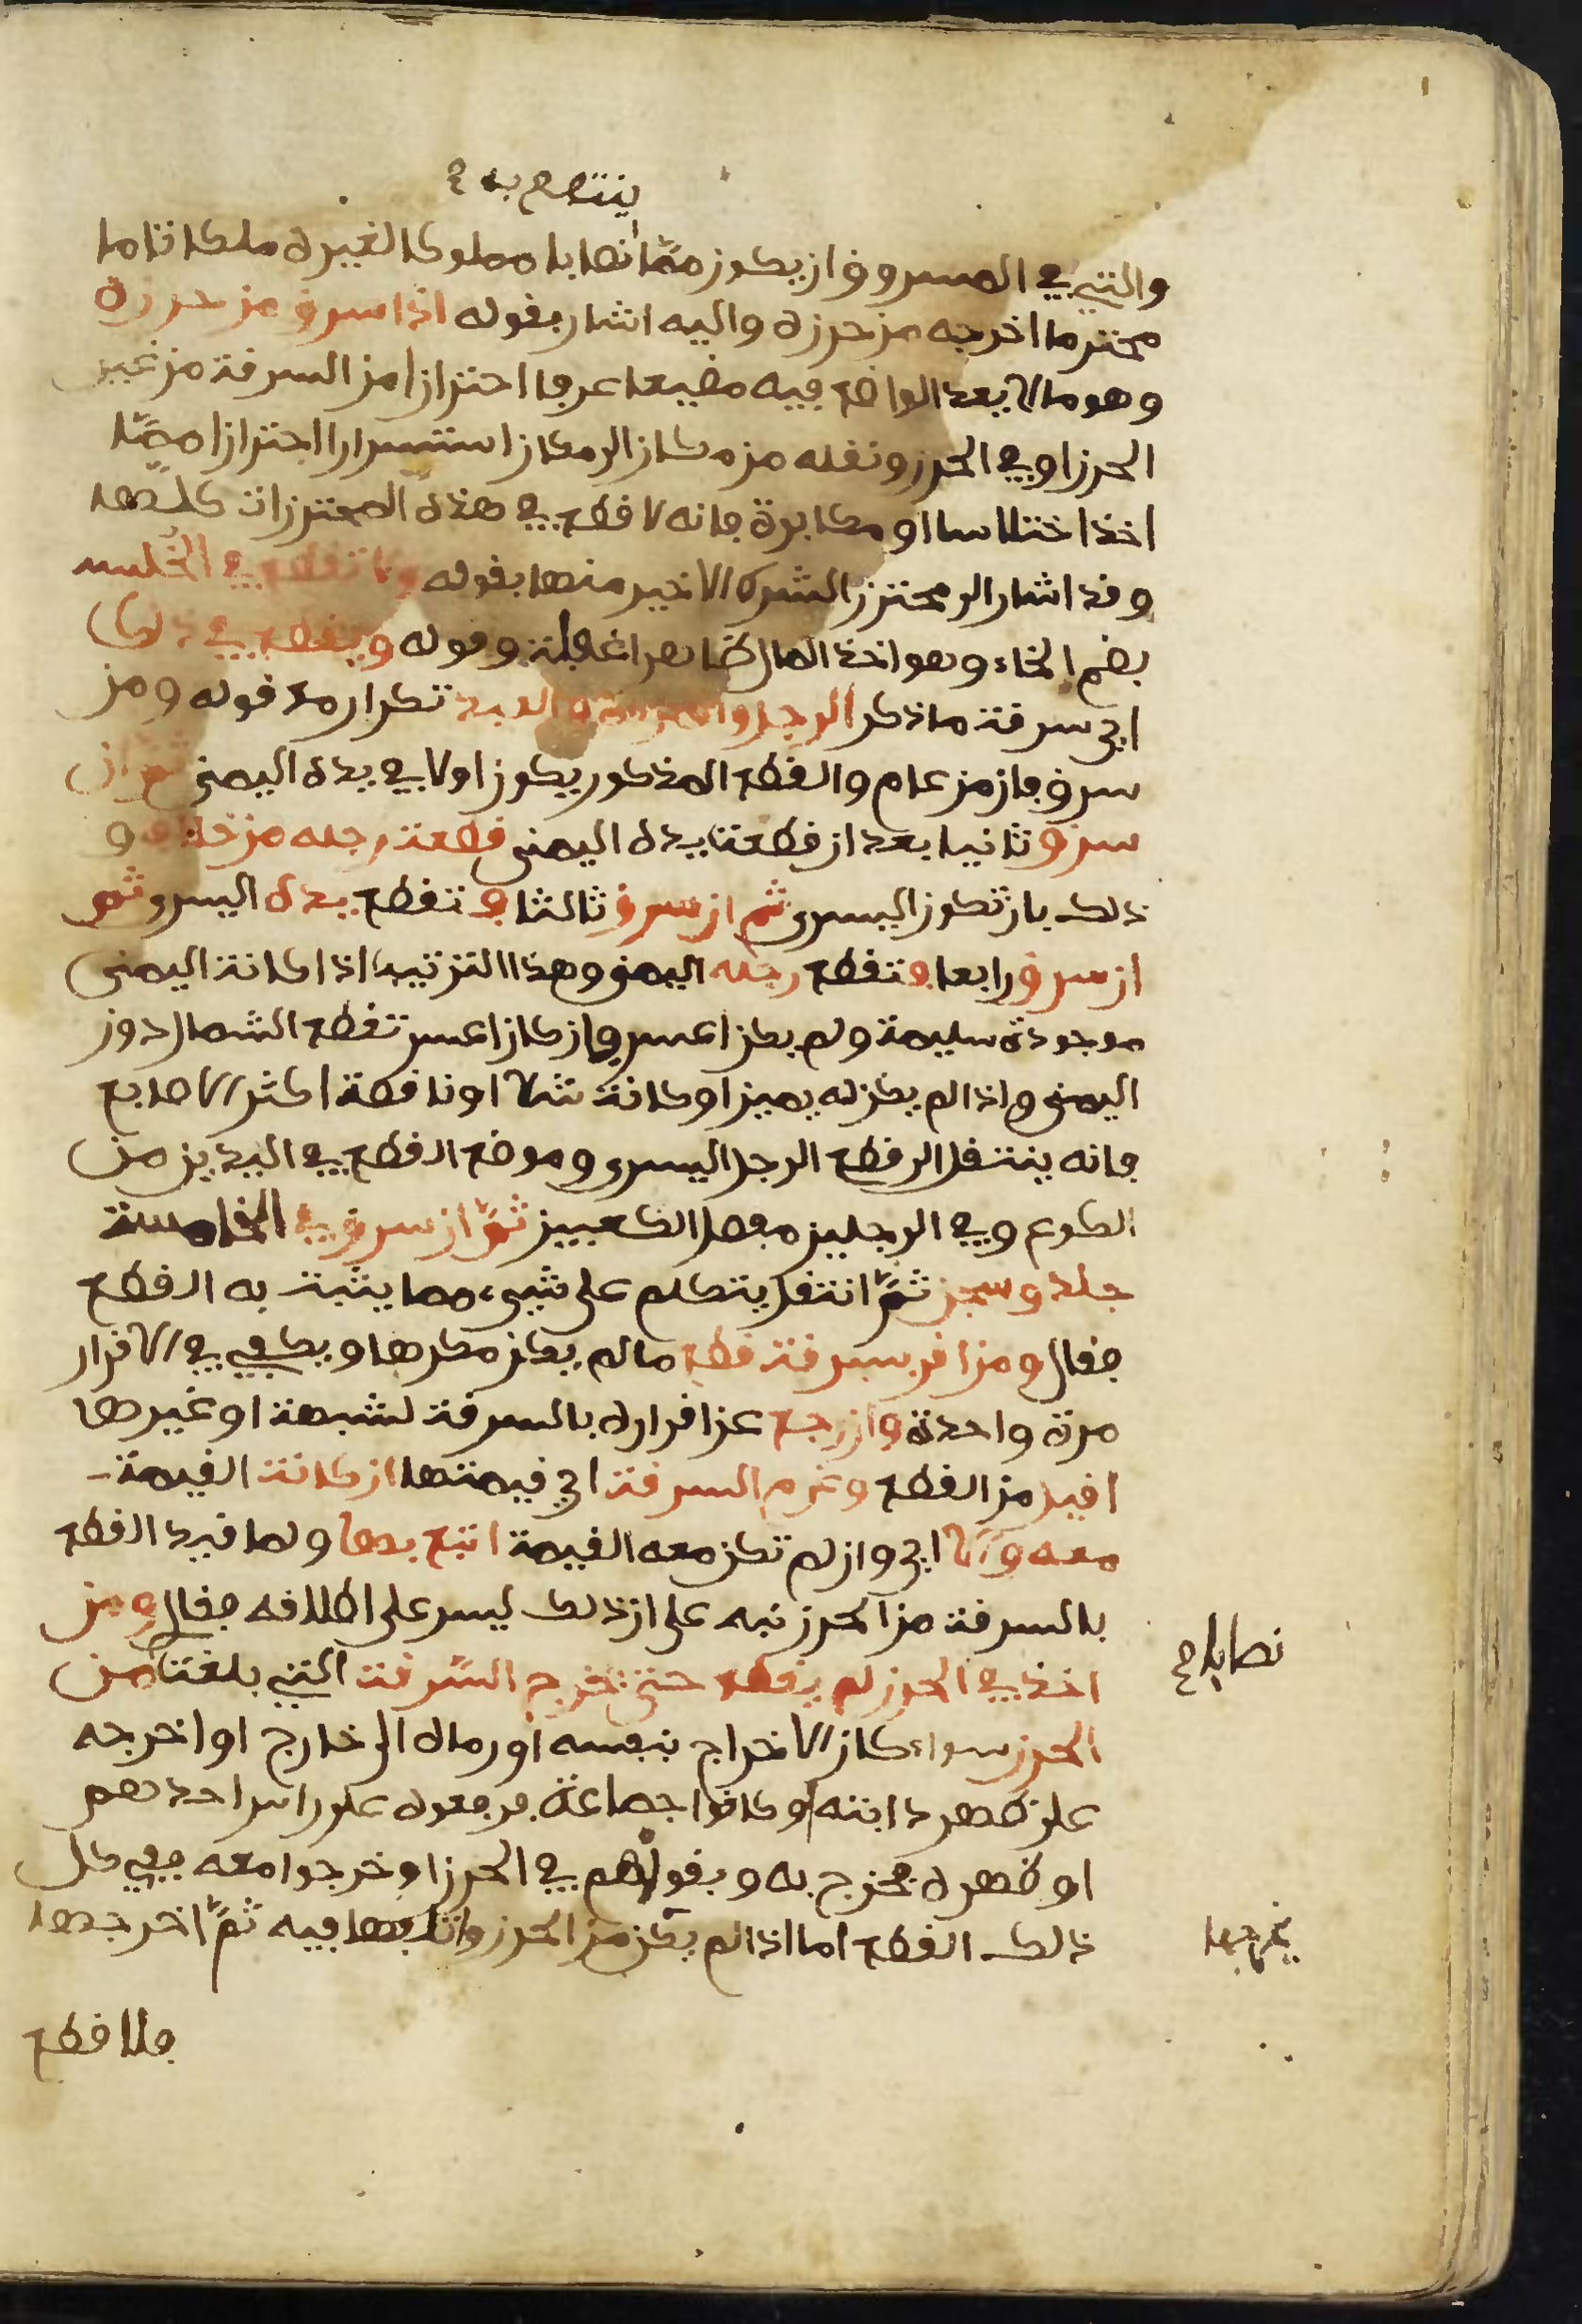 ينتفع به ع
والتي في المسروق ان يكون مما نصابا مملوكا لغيره ملكا تاما
محترما اخرجه من حرزه واليه اشار بقوله اذا سرق من حرزه
وهو ما لا يعد الواضع فيه مضيعا عرفا احترازا من السرقة من غير
الحرز او في الحرز ونقله من مكان الى مكان استسرارا احترازا مما
اخذ اختلاسا او مكابرة فانه لا قطع في هذه المحترزات كلها
وقد اشار الى محترز الشرط الاخير منها بقوله ولا قطع في الخلسة
بضم الخاء وهو اخذ المال ظاهرا غفلة وقوله ويقطع في ذلك
اي سرقة ما ذكر الرجل والمراة والعبد تكرار مع قوله ومن
سرق فان من عام والقطع المذكور يكون اولا في يده اليمنى ثم ان
سرق ثانيا بعد ان قطعت يده اليمنى قطعت رجله من خلاف و
ذلك بان تكون اليسرى ثم ان سرق ثالثا فتقطع يده اليسرى ثم
ان سرق رابعا فتقطع رجله اليمنى وهذا الترتيب اذا كانت اليمنى
موجودة سليمة ولم يكن اعسر وان كان اعسر تقطع الشمال دون
اليمنى واذا لم يكن له يمين او كانت شلا او ناقصة اكثر الاصابع
فانه ينتقل الى قطع الرجل اليسرى وموضع القطع في اليدين من
الكوع وفي الرجلين مفصل الكعبين ثم ان سرق في الخامسة
جلد وسجن ثم انتقل يتكلم على شيء مما يثبت به القطع
فقال ومن اقر بسرقة قطع ما لم يكن مكرها ويكفي في الاقرار
مرة واحدة وان رجع عن اقراره بالسرقة لشبهة او غيرها
اقيل من القطع وغرم السرقة اي قيمتها ان كانت القيمة
معه والا اي وان لم تكن معه القيمة اتبع بها ولما قيد القطع
بالسرقة من الحرز نبه على ان ذلك ليس على اطلاقه فقال ومن
اخذ في الحرز لم يقطع حتى يخرج السرقة التي بلغت من
نصابا صح
الحرز سواء كان الاخراج بنفسه او رماه الى خارج او اخرجه
على ظهر دابته او كانوا جماعة فرفعوه على راس احدهم
او ظهره فخرج به وبقوا هم في الحرز او خرجوا معه ففي كل
ذلك القطع اما اذا لم يكن من الحرز واتلفها فيه ثم اخرجها
يخرجها
فلا قطع